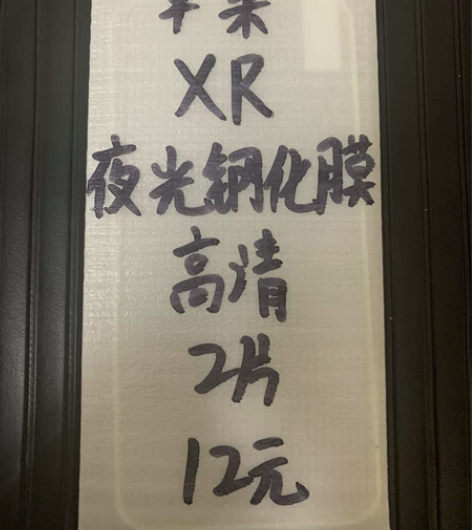 苹果
XR
夜光钢化膜
高清
2片
12元